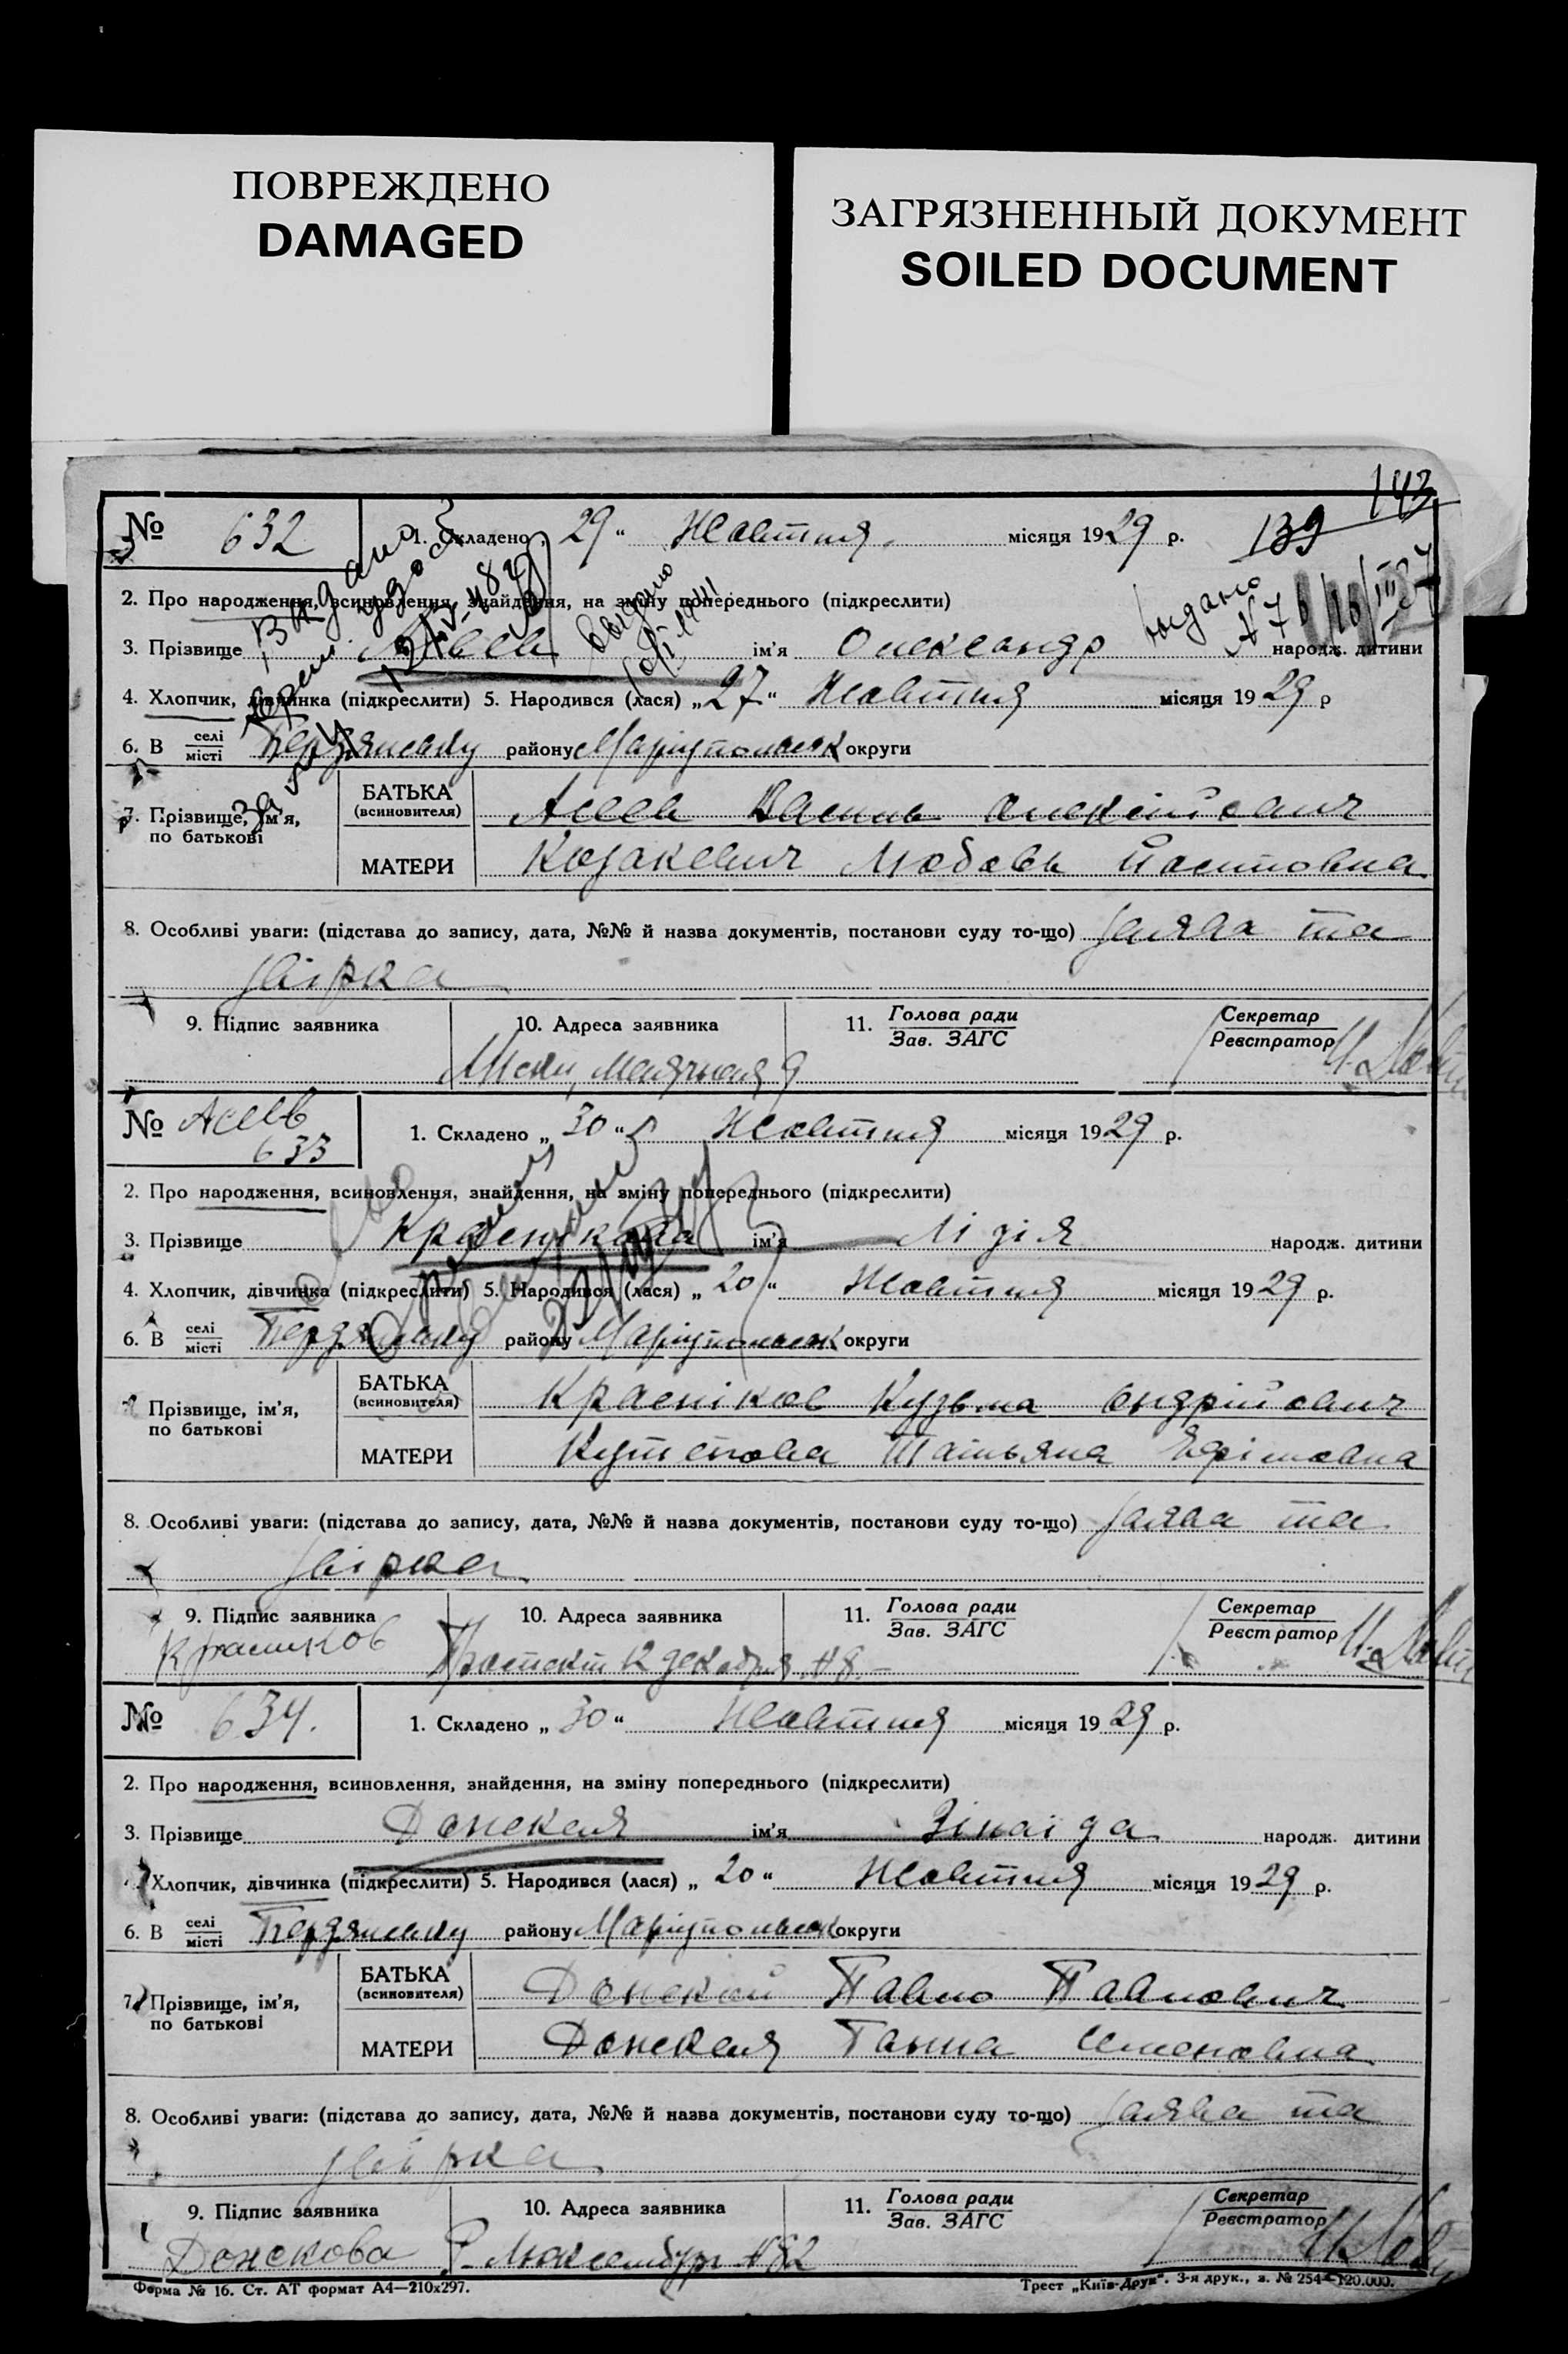 ПОВРЕЖДЕНО
DAMAGED
ЗАГРЯЗНЕННЫЙ ДОКУМЕНТ
SOILED DOCUMENT
143
139
№ 632
1. Складено „29“ Жовтня місяця 1929 р.
2. Про народження, всиновлення, знайдення, на зміну попереднього (підкреслити)
3. Прізвище Асеев ім’я Олександр народж. дитини
4. Хлопчик, дівчинка (підкреслити) 5. Народився (лася) „27“ Жовтня місяця 1929 р
6. В селі/місті Бердянську району Маріупольск округи
7. Прізвище, ім’я, по батькові
БАТЬКА (всиновителя) Асеев Василь Олексійович
МАТЕРИ Козакевич Любовь
8. Особливі уваги: (підстава до запису, дата, №№ й назва документів, постанови суду то-що) Заява та
звірка
9. Підпис заявника 10. Адреса заявника 11. Голова ради/Зав. ЗАГС Секретар/Реєстратор
9
№ Асеев
633
1. Складено „30“ Жовтня місяця 1929 р.
2. Про народження, всиновлення, знайдення, на зміну попереднього (підкреслити)
3. Прізвище Краснікова ім’я Лідія народж. дитини
4. Хлопчик, дівчинка (підкреслити) 5. Народився (лася) „20“ Жовтня місяця 1929 р.
6. В селі/місті Бердянську району Маріупольск округи
Прізвище, ім’я, по батькові
БАТЬКА (всиновителя) Красніков Кузьма Ондрійович
МАТЕРИ Кутепова Татьяна Єфімовна
8. Особливі уваги: (підстава до запису, дата, №№ й назва документів, постанови суду то-що) Заява та
звірка
9. Підпис заявника 10. Адреса заявника 11. Голова ради/Зав. ЗАГС Секретар/Реєстратор
Красников Проспект 12 декабря №8.
№ 634.
1. Складено „30“ Жовтня місяця 1929 р.
2. Про народження, всиновлення, знайдення, на зміну попереднього (підкреслити)
3. Прізвище Донская ім’я Зінаіда народж. дитини
Хлопчик, дівчинка (підкреслити) 5. Народився (лася) „20“ Жовтня місяця 1929 р.
6. В селі/місті Бердянську району Маріупольск округи
7. Прізвище, ім’я, по батькові
БАТЬКА (всиновителя) Донской Павло Павлович
МАТЕРИ Донская Ганна Семеновна
8. Особливі уваги: (підстава до запису, дата, №№ й назва документів, постанови суду то-що) Заява та
звірка
9. Підпис заявника 10. Адреса заявника 11. Голова ради/Зав. ЗАГС Секретар/Реєстратор
Донскова Р. Люксембург №82
Форма № 16. Ст. АТ формат А4—210х297.
Трест „Київ-Друк“. 3-я друк., з. № 254—120.000.